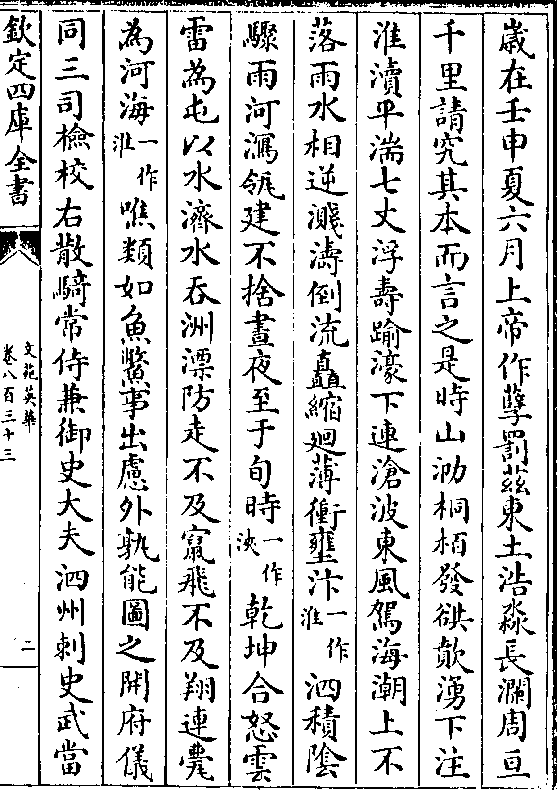 歳在壬申夏六月上帝作孽罰兹東土浩淼長瀾周亘
千里請究其本而言之是時山泐桐栢發洪歕湧下注
淮瀆平湍七丈浮壽踰濠下連滄波東風駕海潮上不
落雨水相逆濺濤倒流矗縮廻薄衝壅汴一作淮泗積隂
驟雨河瀉瓴建不捨晝夜至于旬時一作浹乾坤合怒雲
雷為屯以水濟水吞洲漂防走不及竄飛不及翔連甍
為河海一作淮噍類如魚鱉事出慮外孰能圖之開府儀
同三司檢校右散騎常侍兼御史大夫泗州刺史武當
欽定四庫全書
文苑英華
卷八百三十三
二